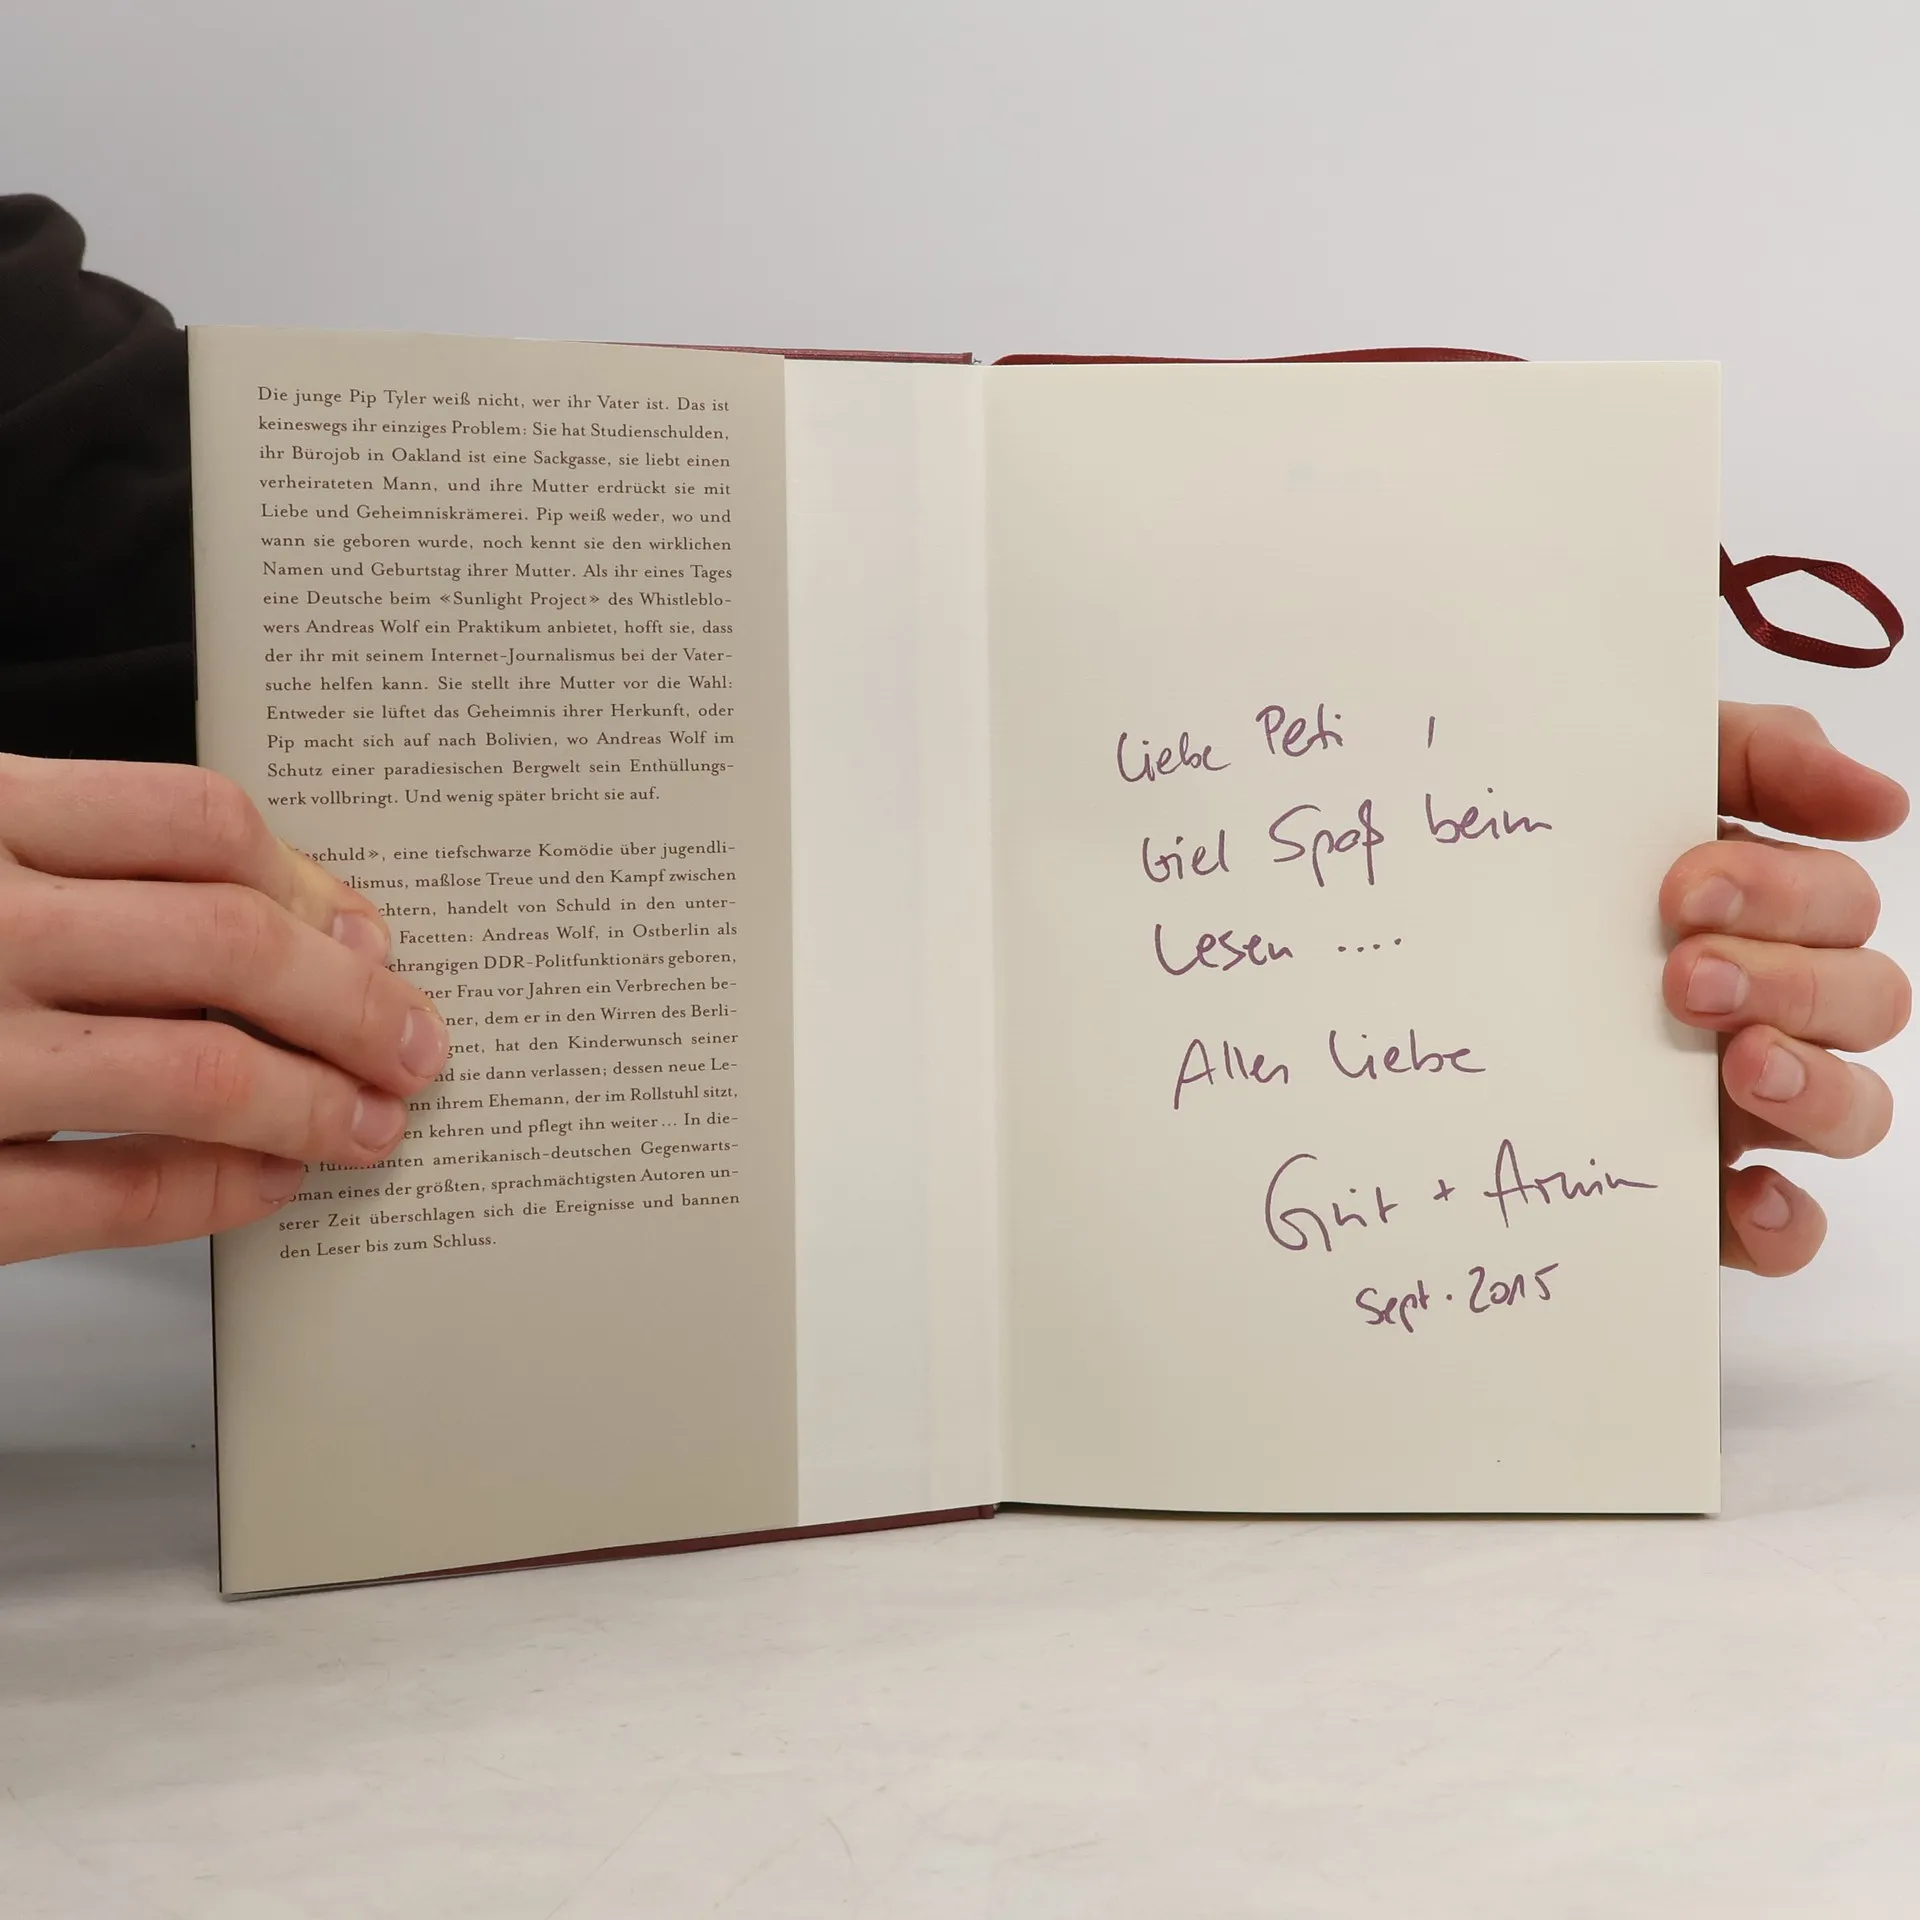 Die junge Pip Tyler weiß nicht, wer ihr Vater ist. Das ist
keineswegs ihr einziges Problem: Sie hat Studienschulden,
ihr Bürojob in Oakland ist eine Sackgasse, sie liebt einen
verheirateten Mann, und ihre Mutter erdrückt sie mit
Liebe und Geheimniskrämerei. Pip weiß weder, wo und
wann sie geboren wurde, noch kennt sie den wirklichen
Namen und Geburtstag ihrer Mutter. Als ihr eines Tages
eine Deutsche beim «Sunlight Project» des Whistleblo-
wers Andreas Wolf ein Praktikum anbietet, hofft sie, dass
der ihr mit seinem Internet-Journalismus bei der Vater-
suche helfen kann. Sie stellt ihre Mutter vor die Wahl:
Entweder sie lüftet das Geheimnis ihrer Herkunft, oder
Pip macht sich auf nach Bolivien, wo Andreas Wolf im
Schutz einer paradiesischen Bergwelt sein Enthüllungs-
werk vollbringt. Und wenig später bricht sie auf.
schuld», eine tiefschwarze Komödie über jugendli-
alismus, maßlose Treue und den Kampf zwischen
chtern, handelt von Schuld in den unter-
Facetten: Andreas Wolf, in Ostberlin als
chrangigen DDR-Politfunktionärs geboren,
ner Frau vor Jahren ein Verbrechen be-
ner, dem er in den Wirren des Berli-
gnet, hat den Kinderwunsch seiner
nd sie dann verlassen; dessen neue Le-
nn ihrem Ehemann, der im Rollstuhl sitzt,
en kehren und pflegt ihn weiter... In die-
anten amerikanisch-deutschen Gegenwarts-
oman eines der größten, sprachmächtigsten Autoren un-
serer Zeit überschlagen sich die Ereignisse und bannen
den Leser bis zum Schluss.
Liebe Peti,
Viel Spaß beim
Lesen ....
Alles Liebe
Grit + Armin
Sept. 2015